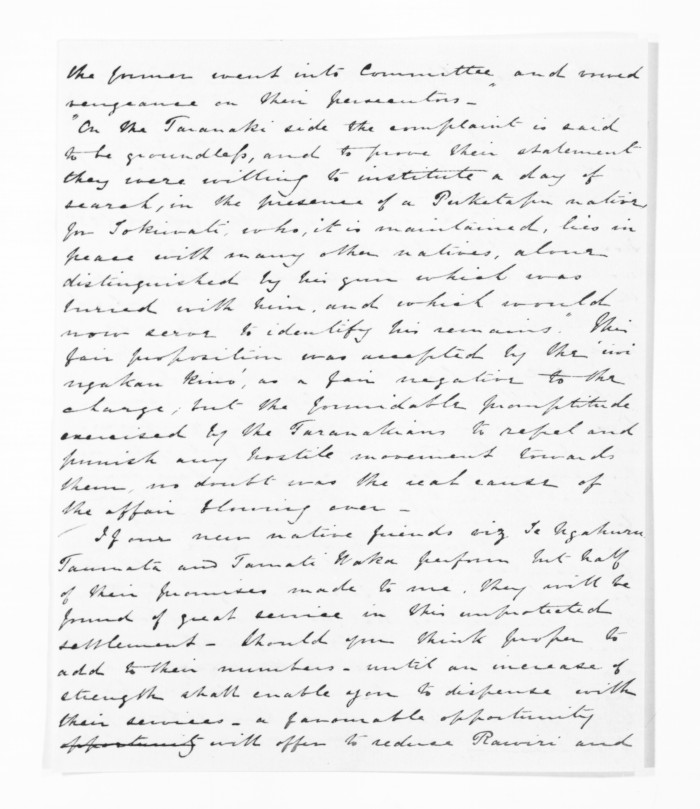 the former went into Committee" and vowed
vengeance on their persecutors -
"On the Taranaki side the complaint is said
to be groundless, and to prove their statement
they were willing to institute a day of
search, in the presence of a Puketapu native
for Tokiwati, who, it is maintained, lies in
peace with many other natives, alone
distinguished by his gun which was
buried with him, and which would
now serve to identify his remains." This
fair proposition was accepted by the 'iwi
ngakau kino', as a fair negative to the
charge; but the formidable promptitude
exercised by the Taranakians to repel and
punish any hostile movement towards
them, no doubt was the real cause of
the affair blowing over -
If our new native friends viz Te Ngahuru
Taumata and Tamati Waka perform but half
of their promises made to me, they will be
found of great service in this unprotected
settlement - Should you think proper to
add to their numbers - until an increase of
strength shall enable you to dispense with
their services - a favourable opportunity
opportunity will offer to reduce Rawiri and